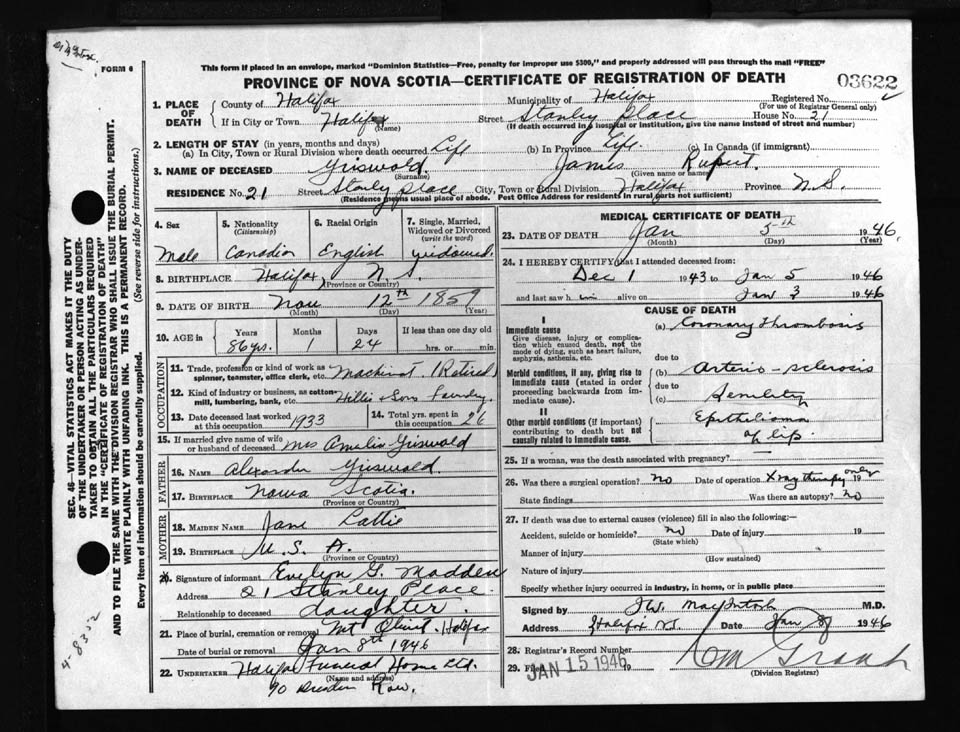 FORM 6
This form if placed in an envelope, marked "Dominion Statistics—Free, penalty for improper use $300," and properly addressed will pass through the mail "FREE"
PROVINCE OF NOVA SCOTIA—CERTIFICATE OF REGISTRATION OF DEATH
03622
1. PLACE OF DEATH
County of Halifax Municipality of Halifax Registered No.
(For use of Registrar General only)
If in City or Town Halifax Street Stanley Place House No. 21
(Name) (If death occurred in a hospital or institution, give the name instead of street and number)
2. LENGTH OF STAY (in years, months and days)
(a) In City, Town or Rural Division where death occurred Life (b) In Province Life (c) In Canada (if immigrant)
3. NAME OF DECEASED Griswold James Rupert
(Surname) (Given name or names)
RESIDENCE No. 21 Street Stanley place City, Town or Rural Division Halifax Province N.S.
(Residence means usual place of abode. Post Office Address for residents in rural parts not sufficient)
4. Sex
Male
5. Nationality
(Citizenship)
Canadian
6. Racial Origin
English
7. Single, Married, Widowed or Divorced
(write the word)
widowed.
8. BIRTHPLACE Halifax, N.S.
(Province or Country)
9. DATE OF BIRTH Nov 12th 1859
(Month) (Day) (Year)
10. AGE in Years Months Days If less than one day
86 yrs. 1 24 hrs. or min.
OCCUPATION
11. Trade, profession or kind of work as spinner, teamster, office clerk, etc. Machinist (Retired)
12. Kind of industry or business, as cotton-mill, lumbering, bank, etc. Hillis & Sons Foundry
13. Date deceased last worked at this occupation 1933
14. Total yrs. spent in this occupation 26
15. If married give name of wife or husband of deceased Mrs Amelia Griswold
FATHER
16. NAME Alexander Griswold.
17. BIRTHPLACE Nova Scotia.
(Province or Country)
MOTHER
18. MAIDEN NAME Jane Lattie
19. BIRTHPLACE U.S.A.
(Province or Country)
20. Signature of informant Evelyn G. Madden
Address 21 Stanley Place.
Relationship to deceased daughter.
21. Place of burial, cremation or removal Mt Olivet. Halifax
Date of burial or removal Jan 8th 1946
22. UNDERTAKER Halifax Funeral Home Ltd.
(Name and address)
90 Dresden Row.
MEDICAL CERTIFICATE OF DEATH
23. DATE OF DEATH Jan 5th 1946.
(Month) (Day) (Year)
24. I HEREBY CERTIFY that I attended deceased from:
Dec 1 1943 to Jan 5 1946
and last saw h im alive on Jan 3 1946
CAUSE OF DEATH
I
Immediate cause
Give disease, injury or complication which caused death, not the mode of dying, such as heart failure, asphyxia, asthenia, etc.
(a) Coronary Thrombosis
due to
Morbid conditions, if any, giving rise to immediate cause (stated in order proceeding backwards from immediate cause).
(b) Arterio-sclerosis
due to
(c) Senility
II
Other morbid conditions (if important) contributing to death but not causally related to immediate cause.
Epithelioma
of lip.
25. If a woman, was the death associated with pregnancy?
26. Was there a surgical operation? No Date of operation Xray therapy only 19
State findings Was there an autopsy? No
27. If death was due to external causes (violence) fill in also the following:—
Accident, suicide or homicide? no Date of injury 19
(State which)
Manner of injury
(How sustained)
Nature of injury
Specify whether injury occurred in industry, in home, or in public place
Signed by MacIntosh M.D.
Address Halifax NS Date Jan 8 1946
28. Registrar's Record Number
29. Filed JAN 15 1946 19
(Division Registrar)
SEC. 46—VITAL STATISTICS ACT MAKES IT THE DUTY OF THE UNDERTAKER OR PERSON ACTING AS UNDERTAKER TO OBTAIN ALL THE PARTICULARS REQUIRED IN THE "CERTIFICATE OF REGISTRATION OF DEATH" AND TO FILE THE SAME WITH THE DIVISION REGISTRAR WHO SHALL ISSUE THE BURIAL PERMIT.
WRITE PLAINLY WITH UNFADING INK. THIS IS A PERMANENT RECORD.
Every item of information should be carefully supplied. (See reverse side for instructions.)
4-8352